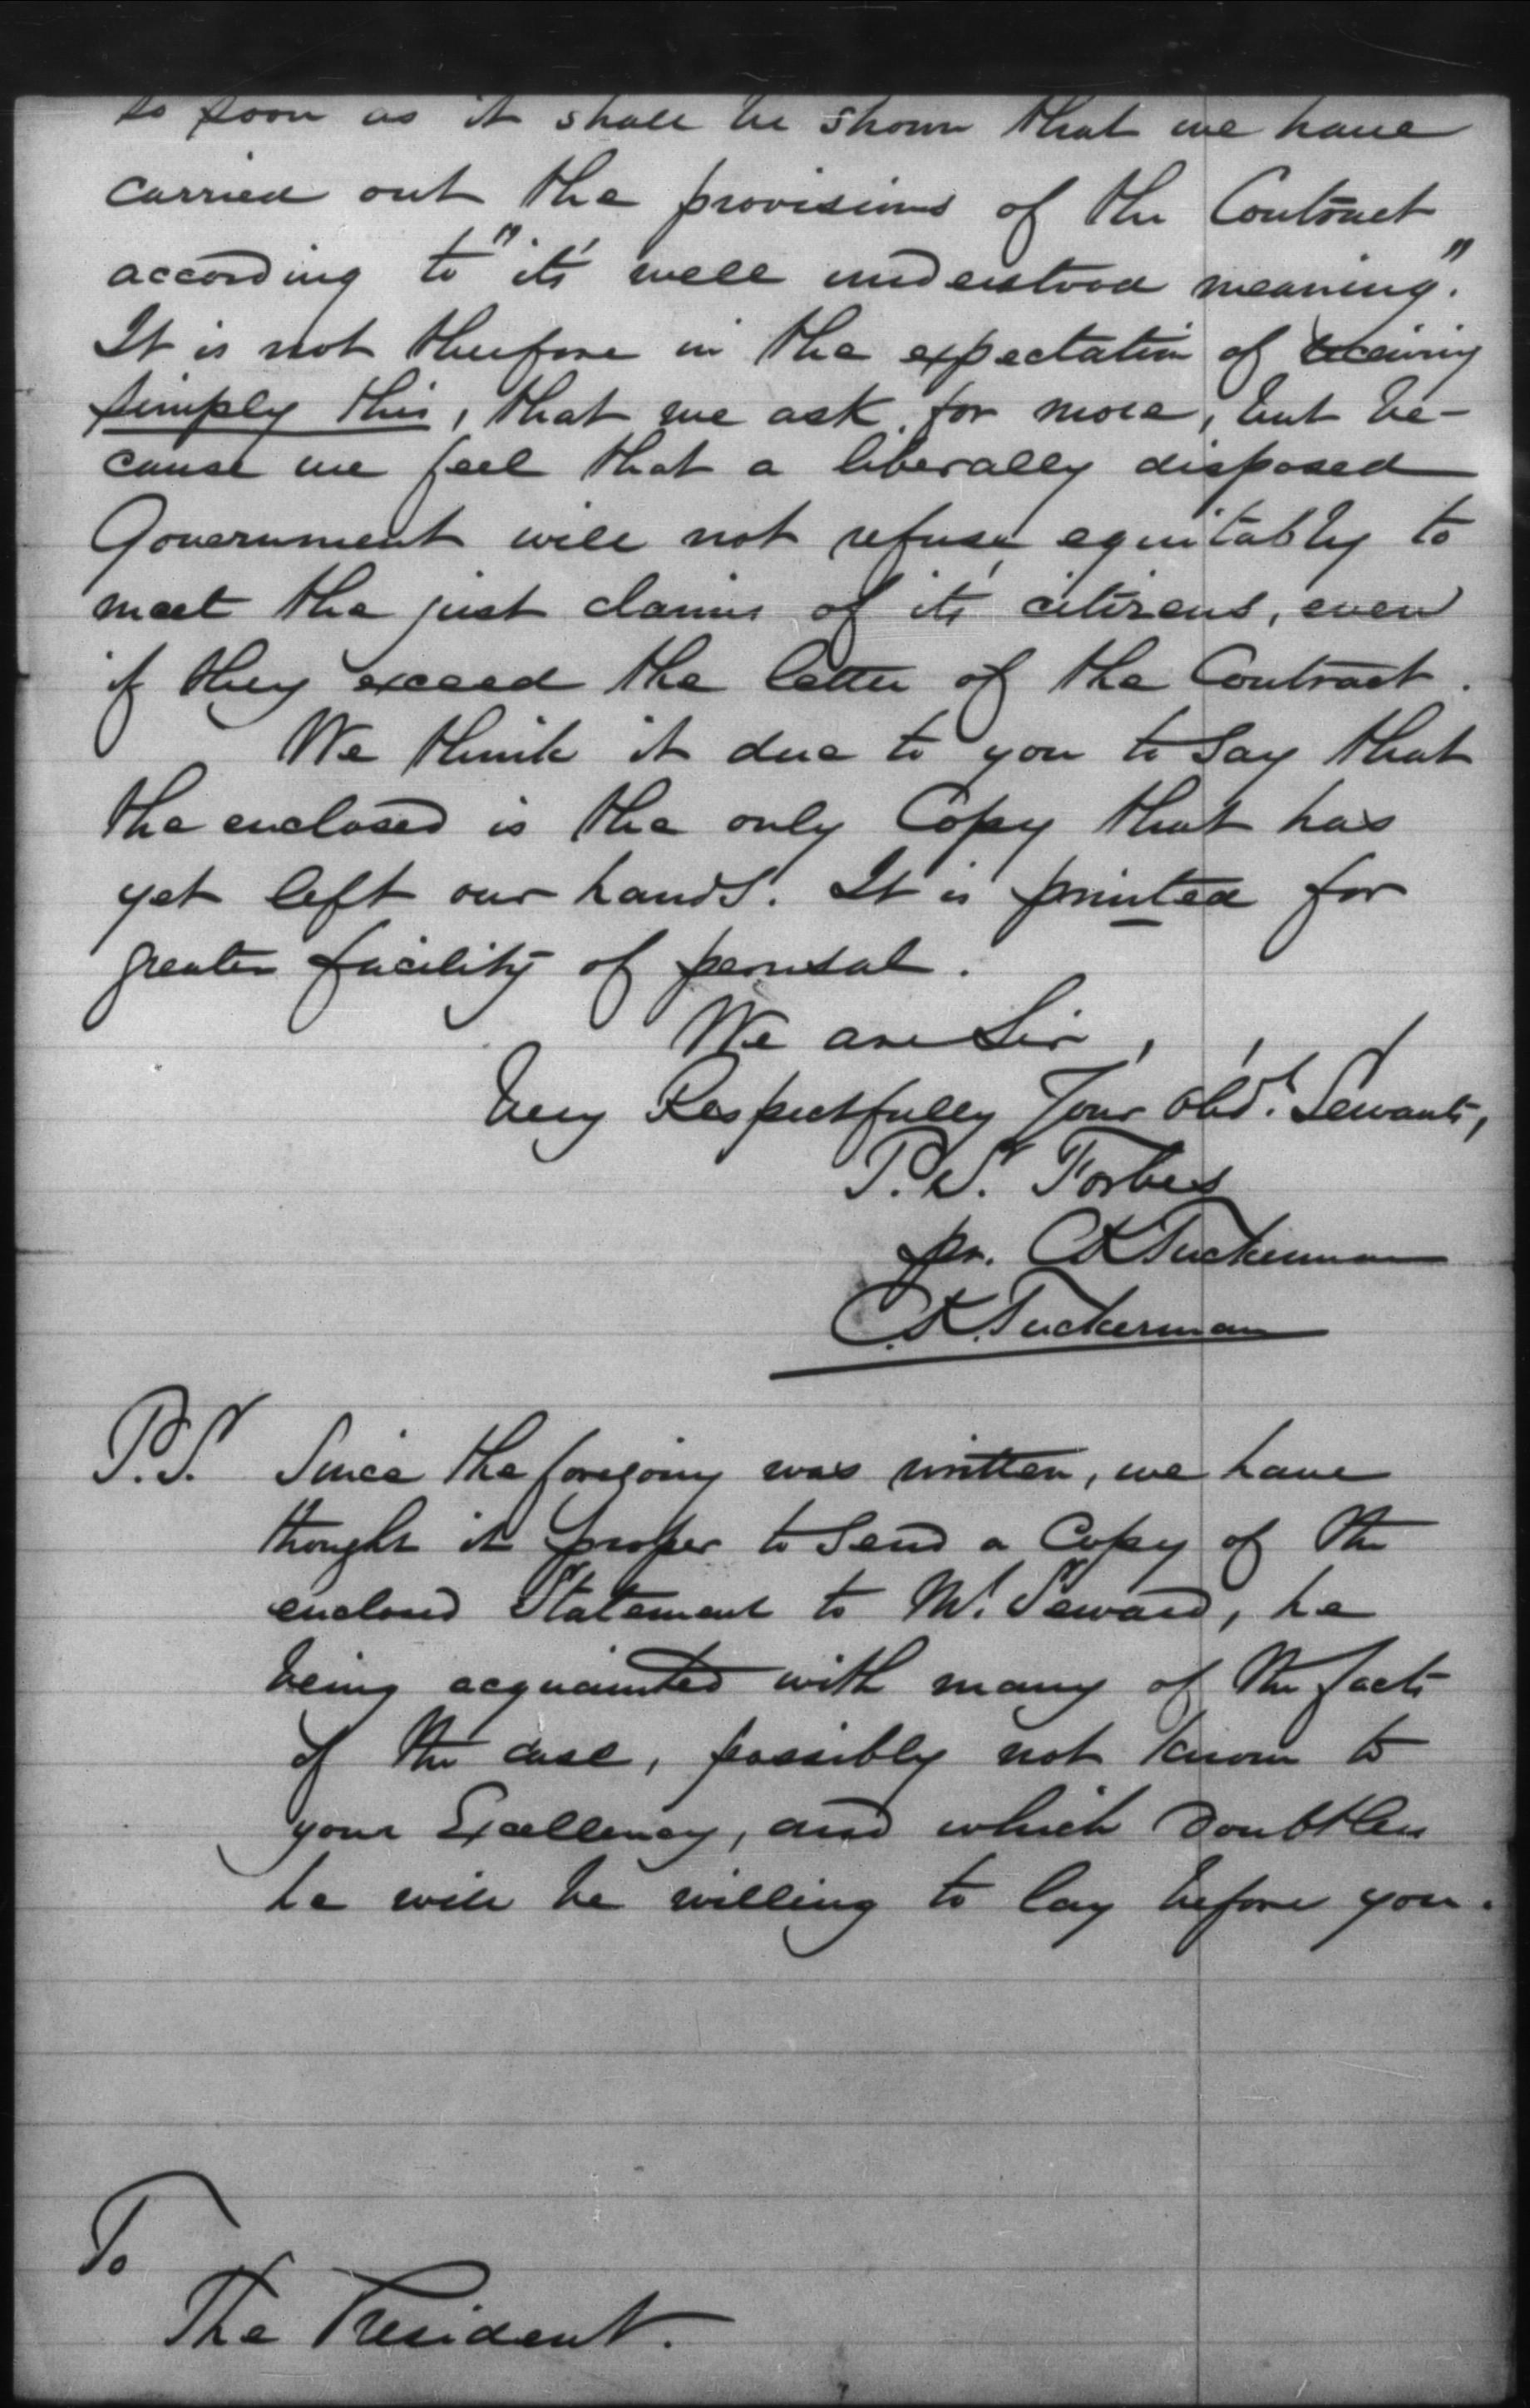 so soon as it shall be shown that we have
carried out the provisions of the Contract
according to "it's well understood meaning."
It is not therefore in the expectation of receiving
simply this, that we ask for more, but be-
cause we feel that a liberally disposed
Government will not refuse equitably to
meet the just claims of it's citizens, even
if they exceed the letter of the Contract.
We think it due to you to say that
the enclosed is the only Copy that has
yet left our hands. It is printed for
greater facility of perusal.
We are Sir,
Very Respectfully Your Obdt. Servants,
P. S. Forbes
pr. C K Tuckerman
C. K. Tuckerman
P.S. Since the foregoing was written, we have
thought it proper to send a Copy of the
enclosed Statement to Mr. Seward, he
being acquainted with many of the facts
of the case, possibly not known to
your Excellency, and which doubtless
he will be willing to lay before you.
To
The President.